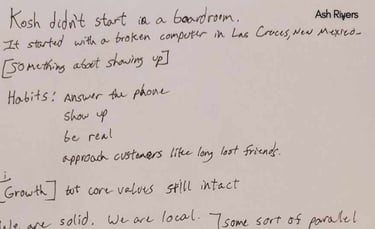 Kosh didn't start in a boardroom.
Ash Rivers
It started with a broken computer in Las Cruces, New Mexico.
[Something about showing up]
Habits: Answer the phone
show up
be real
approach customers like long lost friends.
[Growth] but core values still intact
We are solid. We are local. ] some sort of parallel